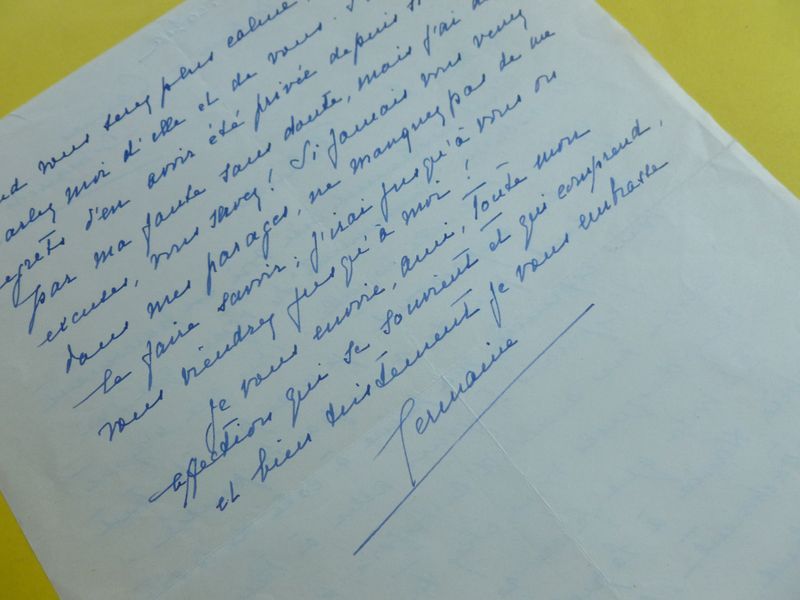 vous serez plus calme,
parlez moi d'elle et de vous.
regrets d'en avoir été privée depuis
par ma faute sans doute, mais j'ai
excuses, vous savez! Si jamais vous venez
dans mes parages, ne manquez pas de me
le faire savoir; j'irai jusqu'à vous ou
vous viendrez jusqu'à moi!
Je vous envoie, ami, toute mon
affection qui se souvient et qui comprend,
et bien tristement je vous embrasse
Germaine